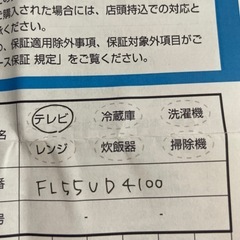 で購入された場合には、店頭持込での対応と
承ください。
の、保証適用除外事項、保証対象外項目がご
ース保証 規定」をご覧ください。
名 テレビ 冷蔵庫 洗濯機
レンジ 炊飯器 掃除機
番 FL55UD4100
号 - -